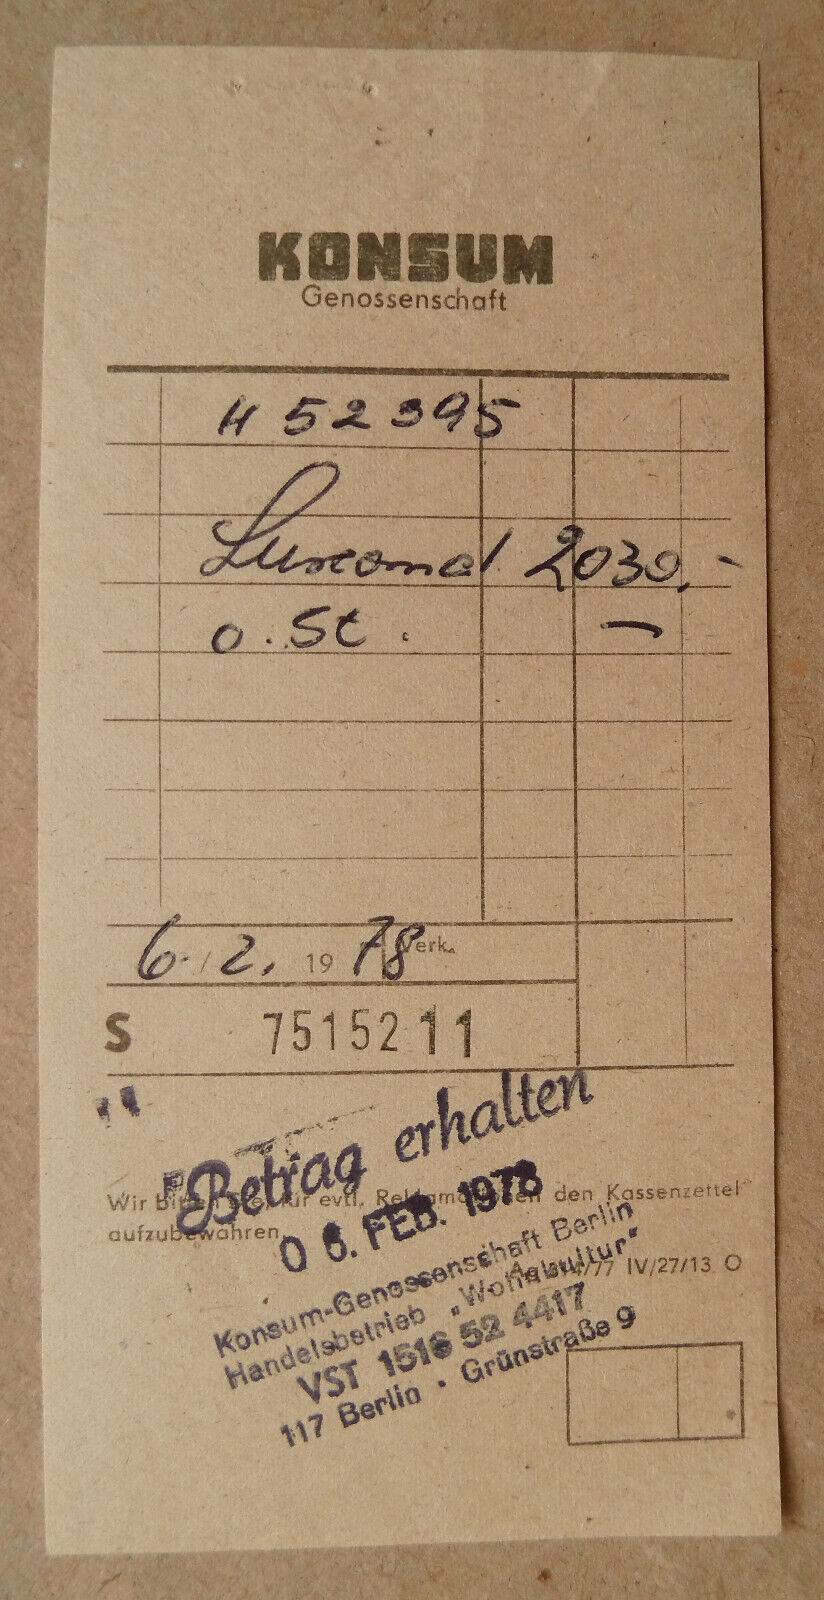 KONSUM
Genossenschaft
H 52395
Luxomat 2030,-
o. St. —
6. 2. 19 78 Verk.
S 7515211
Betrag erhalten
Wir bitten Sie, für evtl. Reklamationen den Kassenzettel
aufzubewahren.
0 6. FEB. 1978
Konsum-Genossenschaft Berlin
Handelsbetrieb „Wohnkultur"
/77 IV/27/13 O
VST 1516 52 4417
117 Berlin · Grünstraße 9